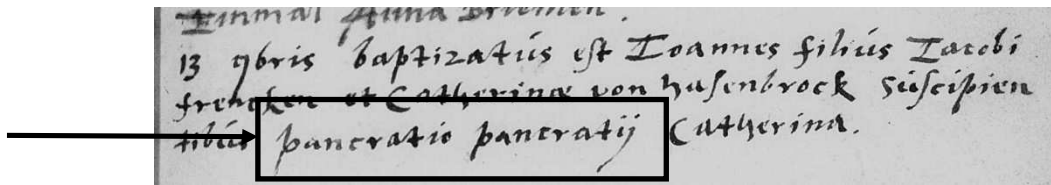 Einmal Anna Briemen.
13 9bris baptizatus est Ioannes filius Iacobi
frencken et Catherinæ von hasenbrock suscipien
tibus pancratio pancratij Catherina.